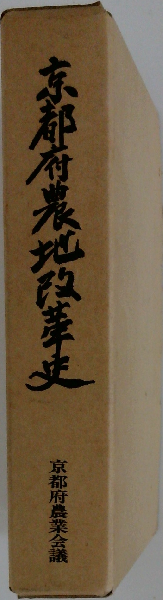 京都府農地改革史
京都府農業会議